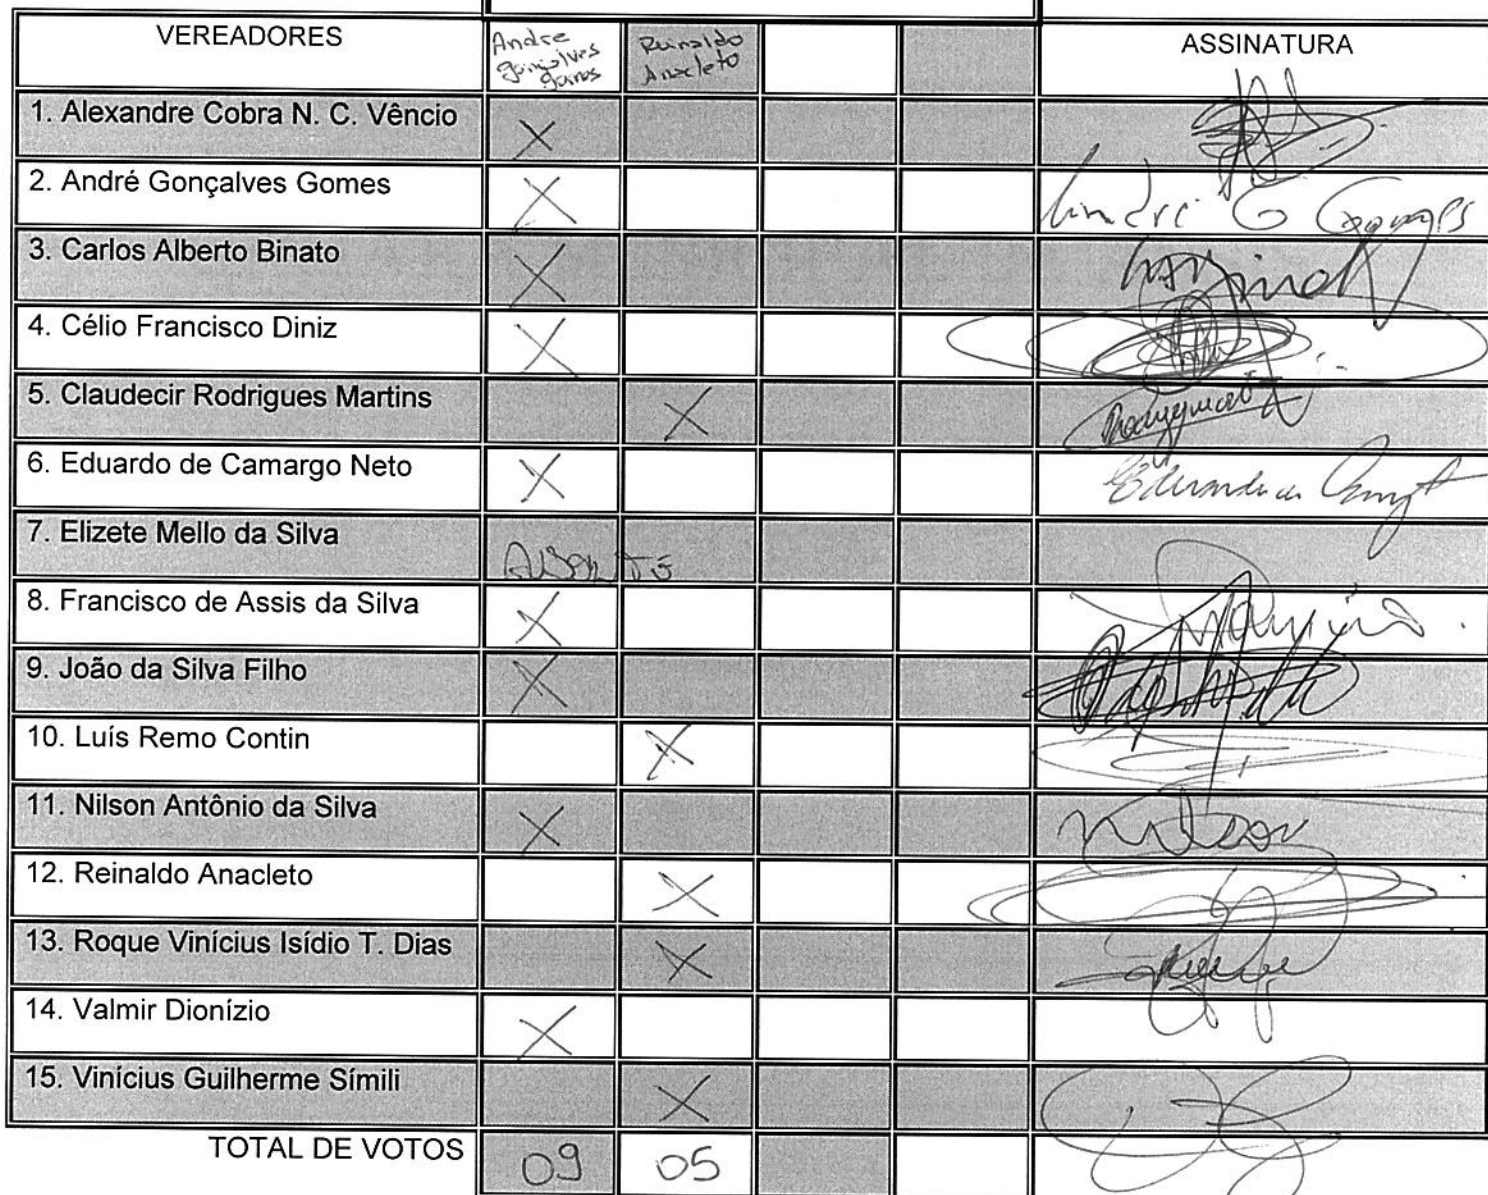 VEREADORES
Andre
Gonçalves
Reinaldo
Anacleto
ASSINATURA
1. Alexandre Cobra N. C. Vêncio X
2. André Gonçalves Gomes X André G Gomes
3. Carlos Alberto Binato X
4. Célio Francisco Diniz X
5. Claudecir Rodrigues Martins X
6. Eduardo de Camargo Neto X
7. Elizete Mello da Silva AUSENTE
8. Francisco de Assis da Silva X
9. João da Silva Filho X
10. Luís Remo Contin X
11. Nilson Antônio da Silva X Nilson
12. Reinaldo Anacleto X
13. Roque Vinícius Isídio T. Dias X
14. Valmir Dionízio X
15. Vinícius Guilherme Símili X
TOTAL DE VOTOS 09 05